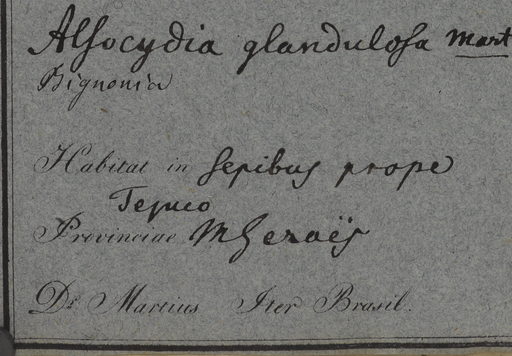 Alsocydia glandulosa Mart
Bignonia
Habitat in sepibus prope
Tejuco
Provinciae MGeraës
Dr. Martius Iter Brasil.